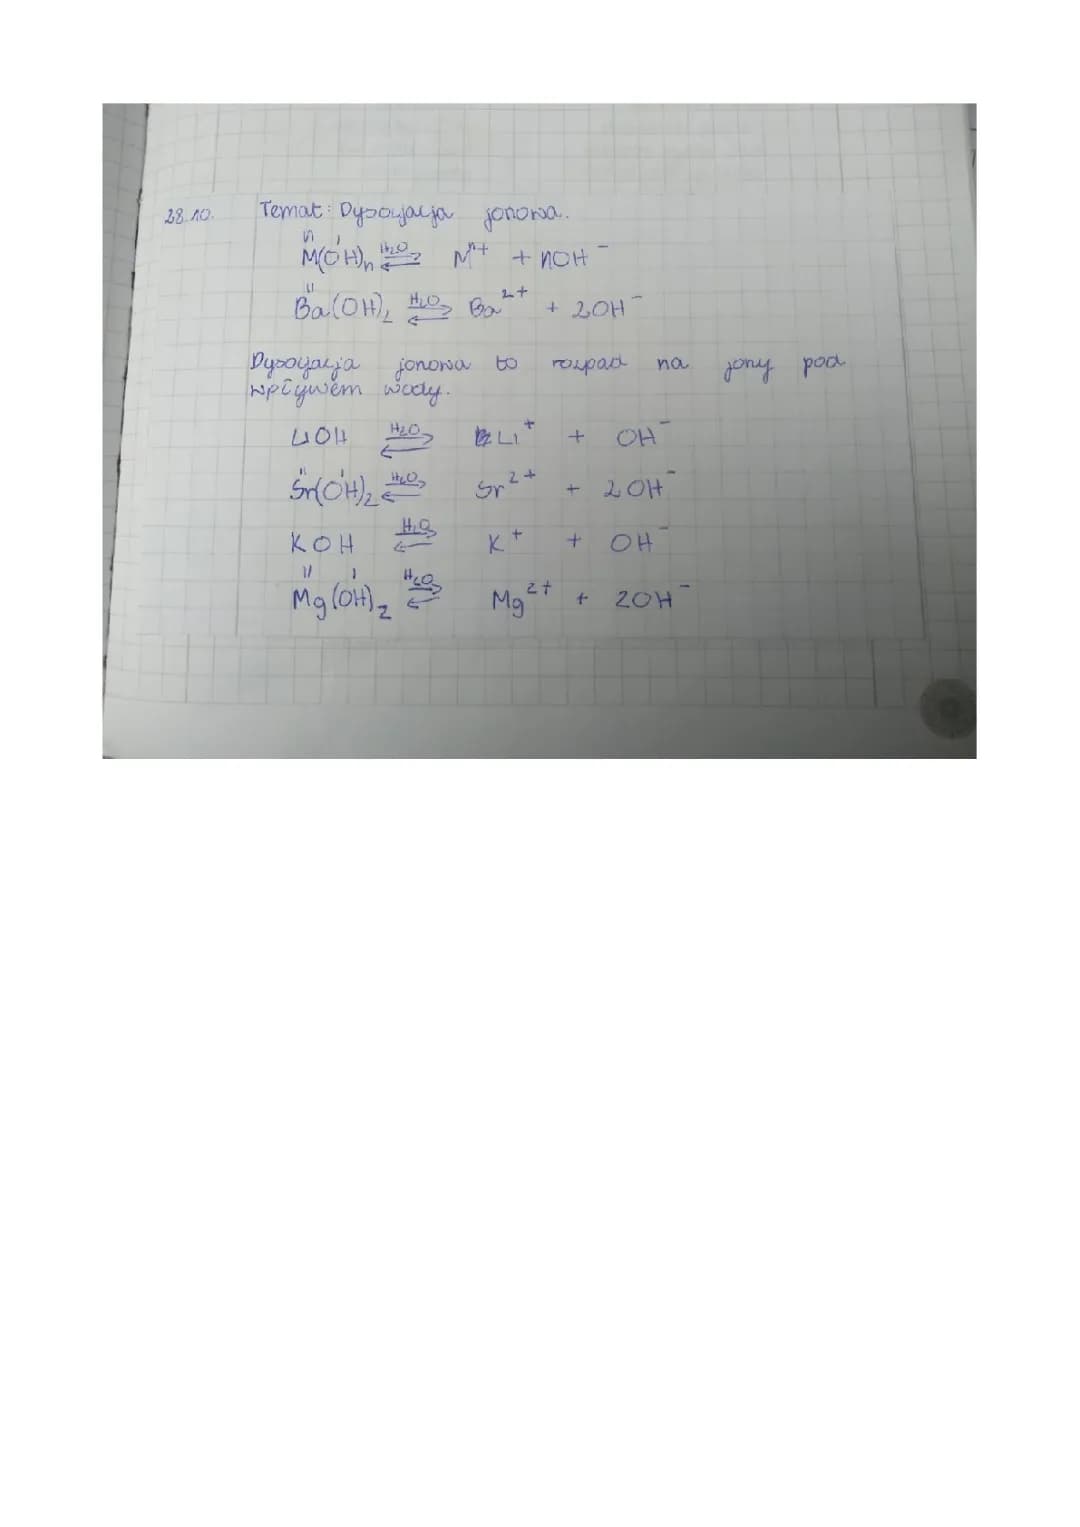 28.10. Temat: Dysocjacja jonowa.
n I
M(OH)n ⇌ H2O Mⁿ⁺ + nOH⁻
II
Ba(OH)2 ⇌ H2O Ba²⁺ + 2OH⁻
Dysocjacja jonowa to rozpad na jony pod
wpływem wody.
LiOH ⇌ H2O Li⁺ + OH⁻
II I
Sr(OH)2 ⇌ H2O Sr²⁺ + 2OH⁻
KOH ⇌ H2O K⁺ + OH⁻
II I
Mg(OH)2 ⇌ H2O Mg²⁺ + 2OH⁻